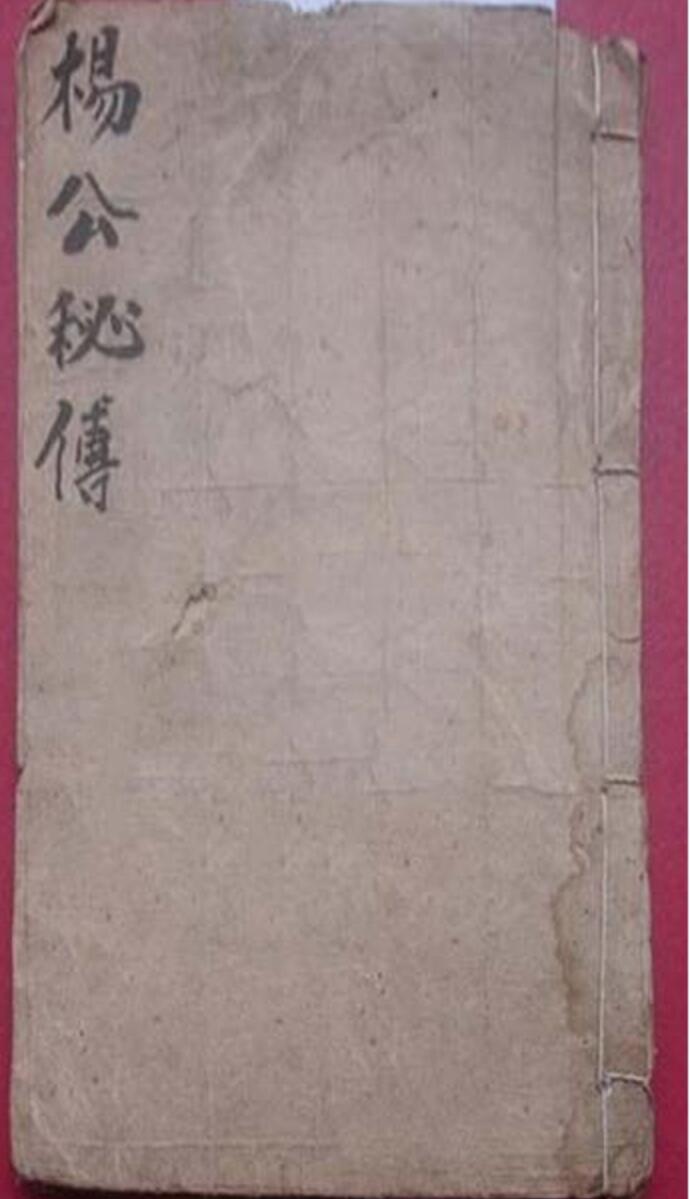 楊公秘傳